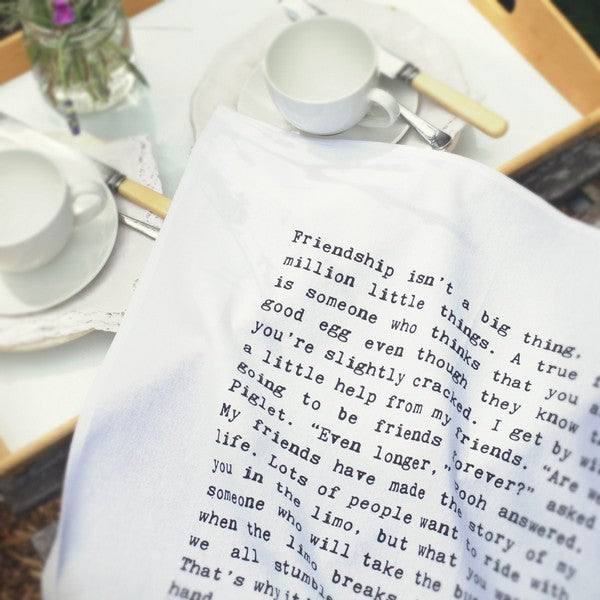 Friendship isn't a big thing,
million little things. A true f
is someone who thinks that you a
good egg even though they know t
you're slightly cracked. I get by wi
a little help from my friends. "Are we
going to be friends forever?" asked
Piglet. "Even longer," Pooh answered.
My friends have made the story of my
life. Lots of people want to ride with
you in the limo, but what you wan
someone who will take the bu
when the limo breaks
we all stumble
That's why it
hand